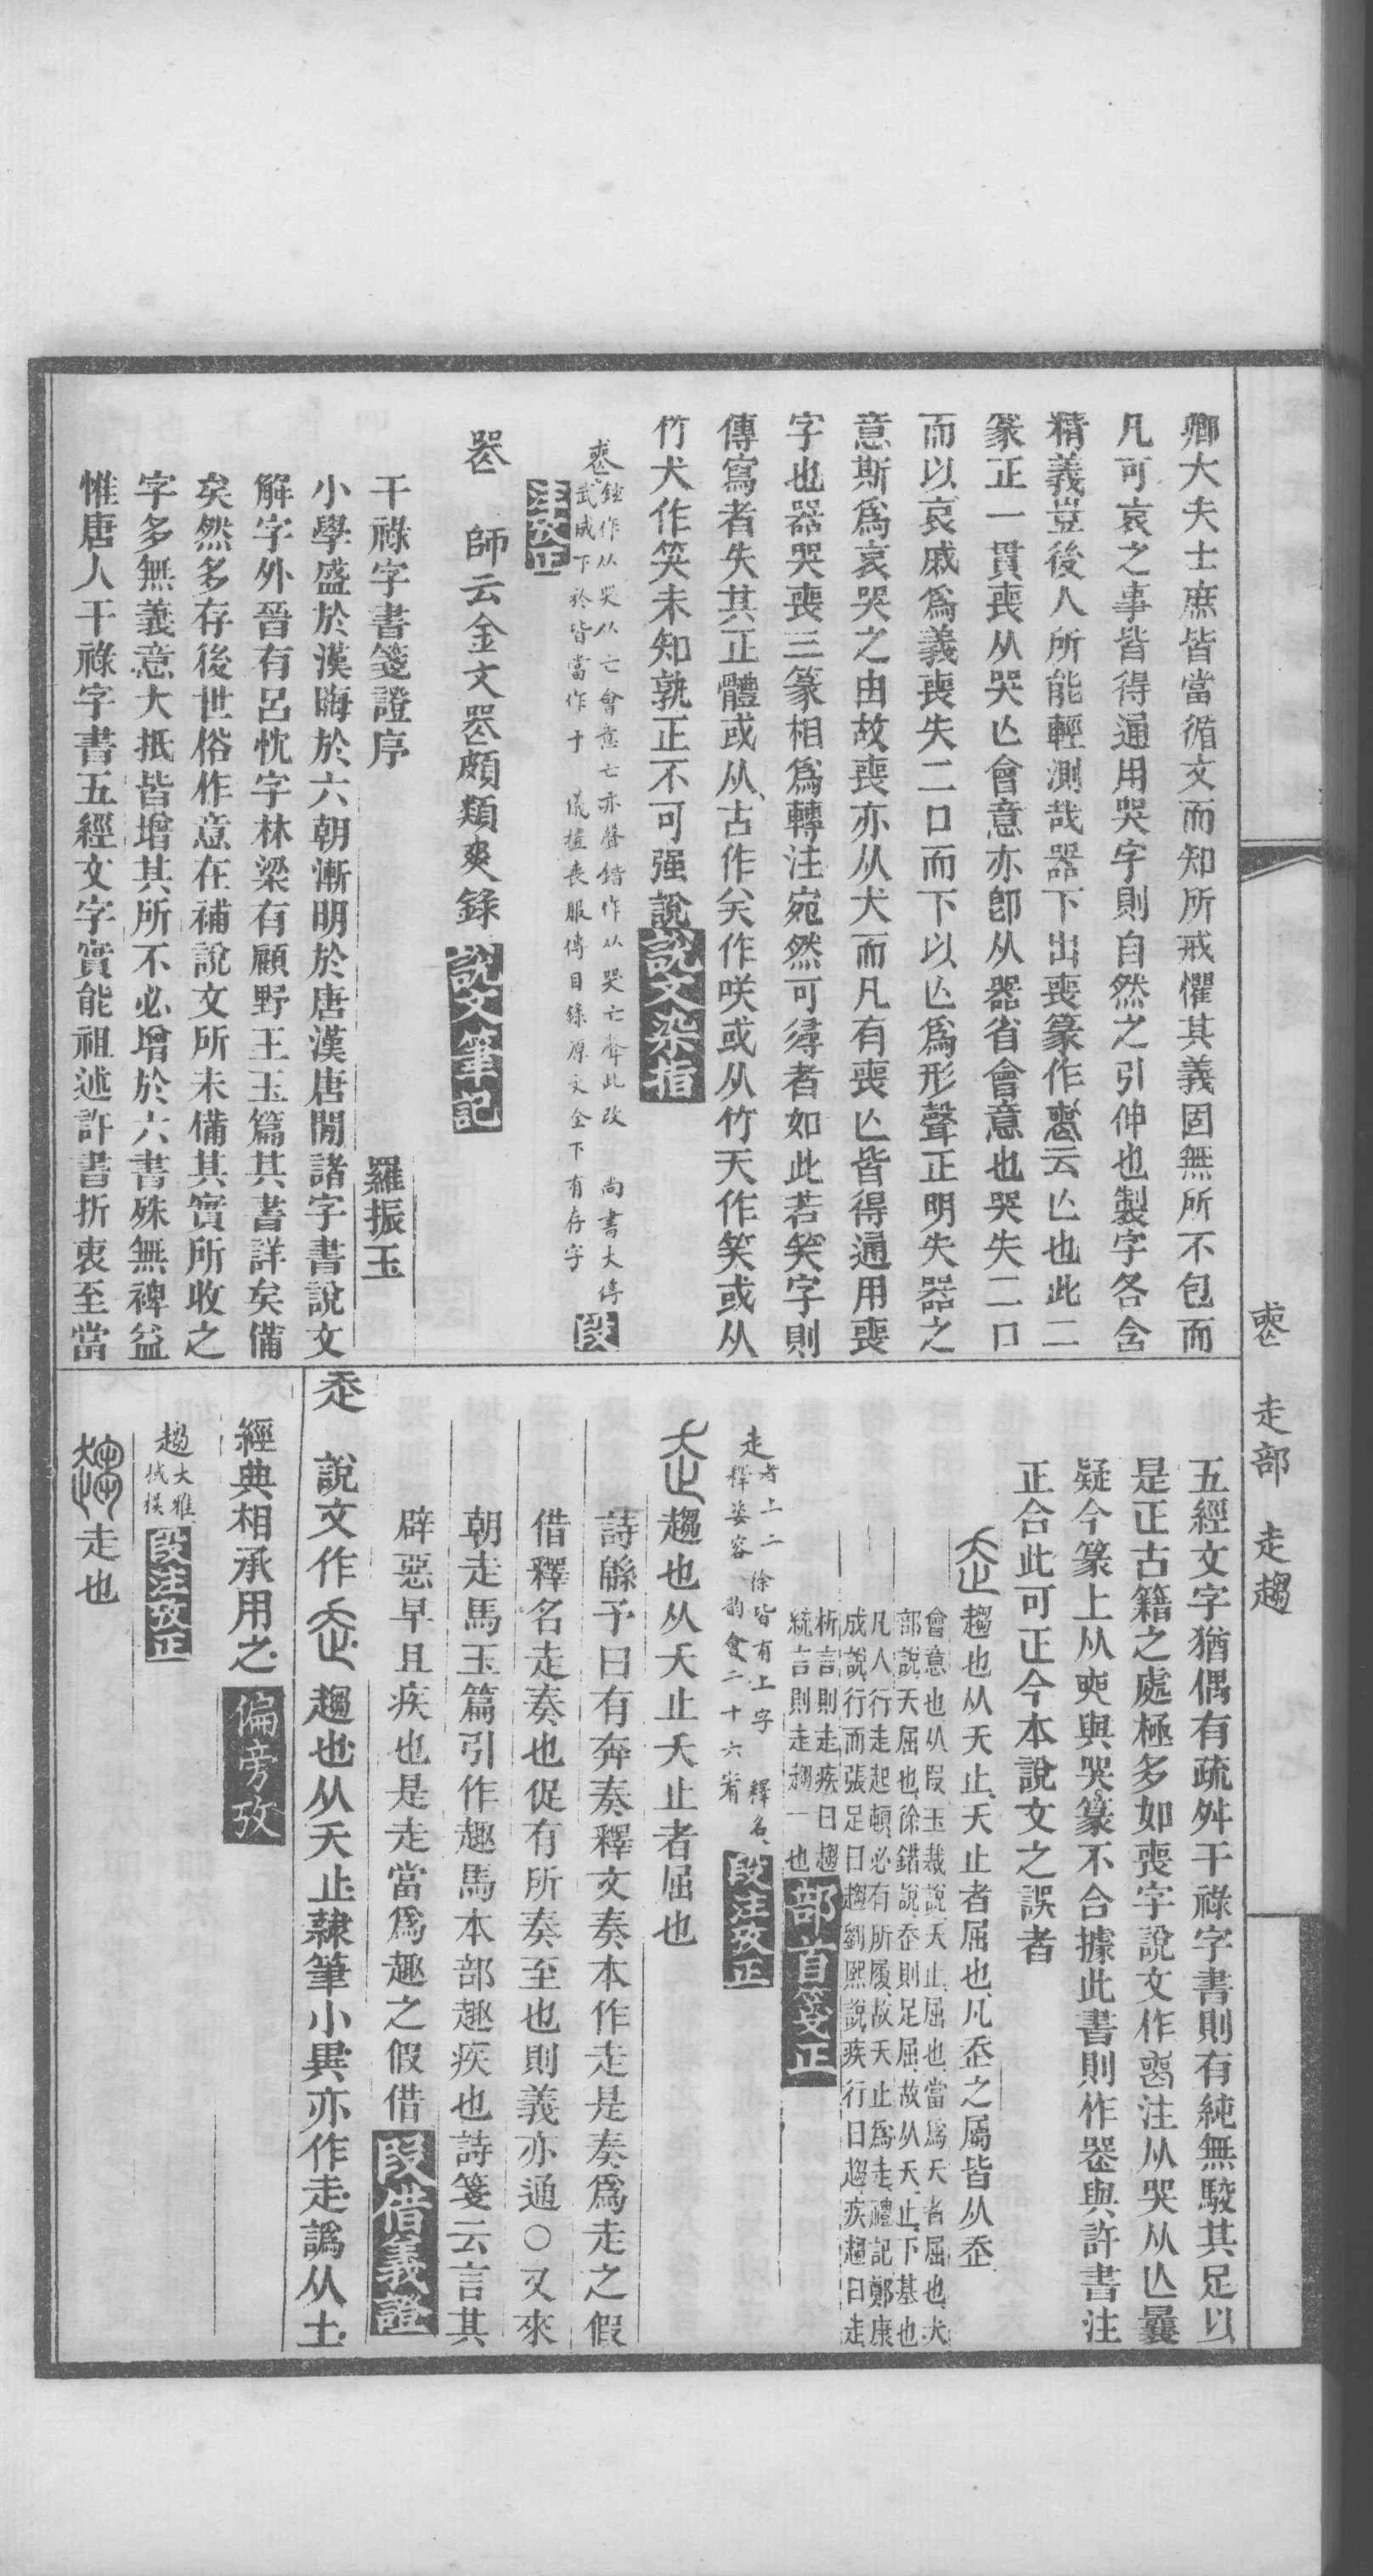 卿大夫士庶皆當循文而知所戒懼其義固無所不包而
凡可哀之事皆得通用哭字則自然之引伸也製字各含
精義豈後人所能輕測哉器下出喪篆作𠷔云亾也此二
篆正一貫喪从哭亾會意亦卽从器省會意也哭失二口
而以哀戚爲義喪失二口而下以亾爲形聲正明失器之
意斯爲哀哭之由故喪亦从犬而凡有喪亾皆得通用喪
字也器哭喪三篆相爲轉注宛然可尋者如此若笑字則
傳寫者失其正體或从古作关作咲或从竹天作笑或从
竹犬作笑未知孰正不可强說說文染指
鉉作从哭从亡會意亡亦聲鍇作从哭亡聲此改　尚書大傳
武成下於皆當作于　儀禮喪服傳目錄原文全下有存字
段
注攷正
師云金文器頗類爽錄說文筆記
干祿字書箋證序
羅振玉
小學盛於漢晦於六朝漸明於唐漢唐閒諸字書說文
解字外晉有呂忱字林梁有顧野王玉篇其書詳矣備
矣然多存後世俗作意在補說文所未備其實所收之
字多無義意大抵皆增其所不必增於六書殊無裨益
惟唐人干祿字書五經文字實能祖述許書折衷至當
走部　走趨
五經文字猶偶有疏舛干祿字書則有純無駮其足以
是正古籍之處極多如喪字說文作𠷔注从哭从亾曩
疑今篆上从㖞與哭篆不合據此書則作噩與許書注
正合此可正今本說文之誤者
趨也从夭止夭止者屈也凡赱之屬皆从赱
會意也从段玉裁說夭止屈也當爲夭者屈也犬
部說夭屈也徐鍇說赱則足屈故从夭止下基也
凡人行走起頓必有所履故夭止爲走禮記鄭康
成說行而張足曰趨劉熙說疾行曰趨疾趨曰走
析言則走疾曰趨
統言則走趨一也
部首箋正
走者上二徐皆有上字　釋名
釋姿容　韵會二十六宥
段注攷正
趨也从夭止夭止者屈也
詩緜予曰有奔奏釋文奏本作走是奏爲走之假
借釋名走奏也促有所奏至也則義亦通○又來
朝走馬玉篇引作趣馬本部趣疾也詩箋云言其
辟惡早且疾也是走當爲趣之假借段借義證
說文作
趨也从夭止隸筆小異亦作走譌从土
經典相承用之偏旁攷
趨大雅
棫樸
段注攷正
走也